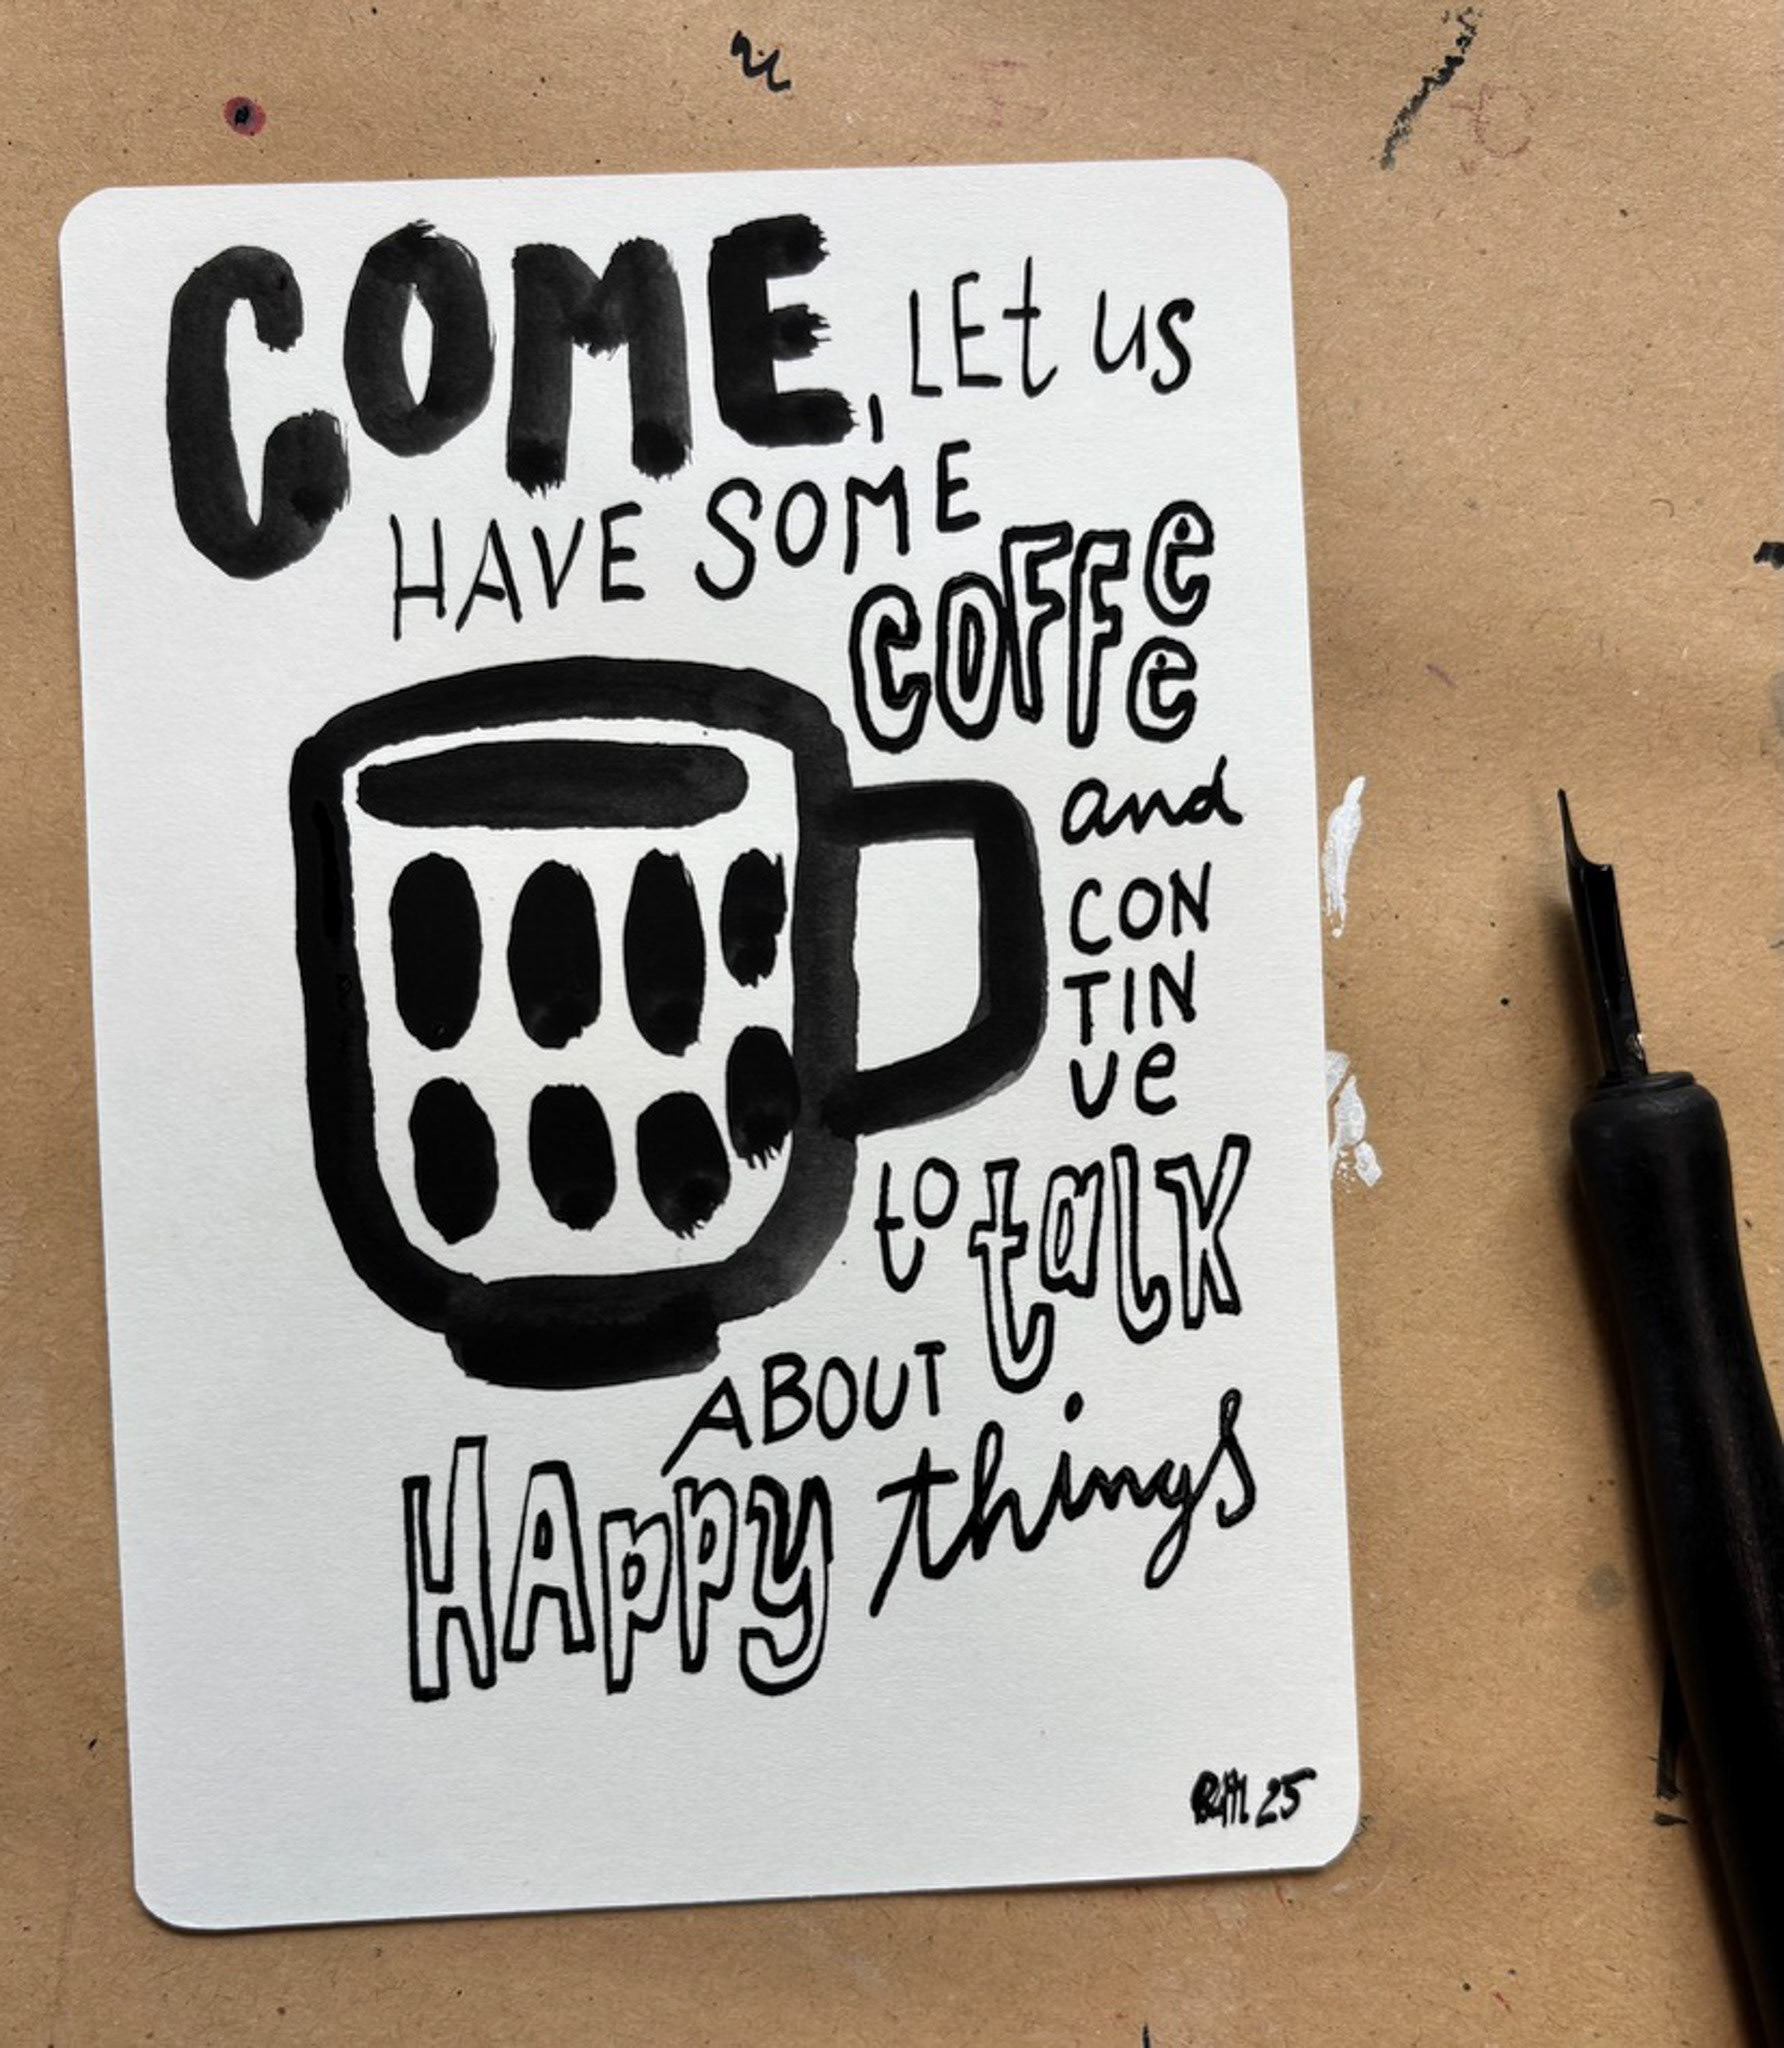 COME, LEt us
HAVE SOME
COFFee
and
CON
TIN
Ue
to talk
ABOUT
HAppy things
25